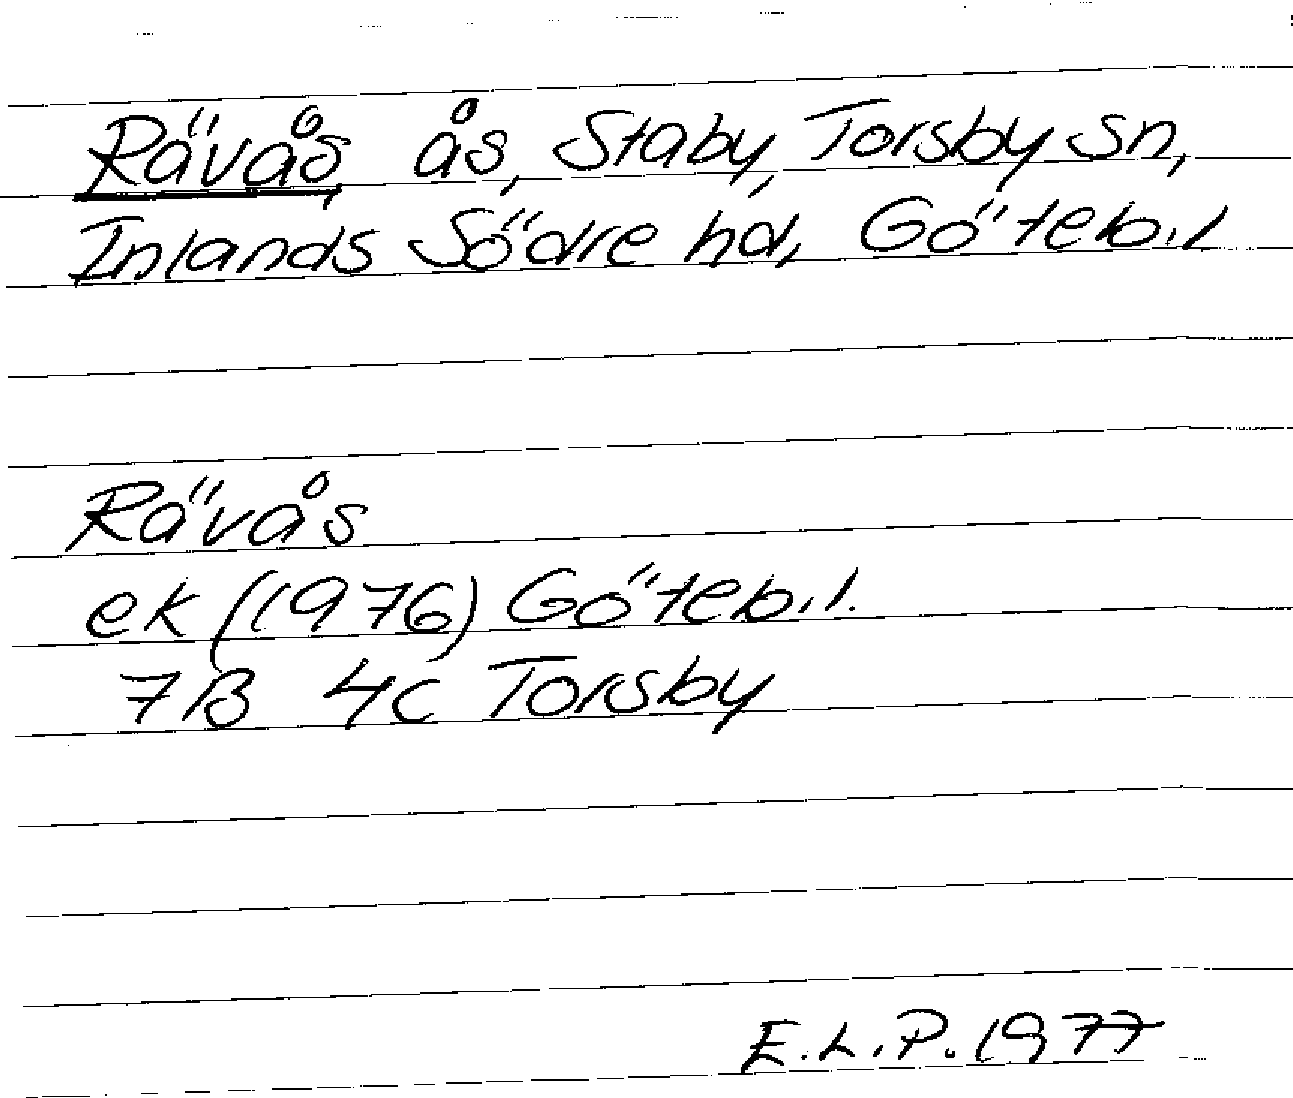 Rävås, ås, Staby, Torsby sn,
Inlands Södre hd, Göteb.l
Rävås
ek (1976) Göteb.l.
7B 4c Torsby
E.L.P. 1977